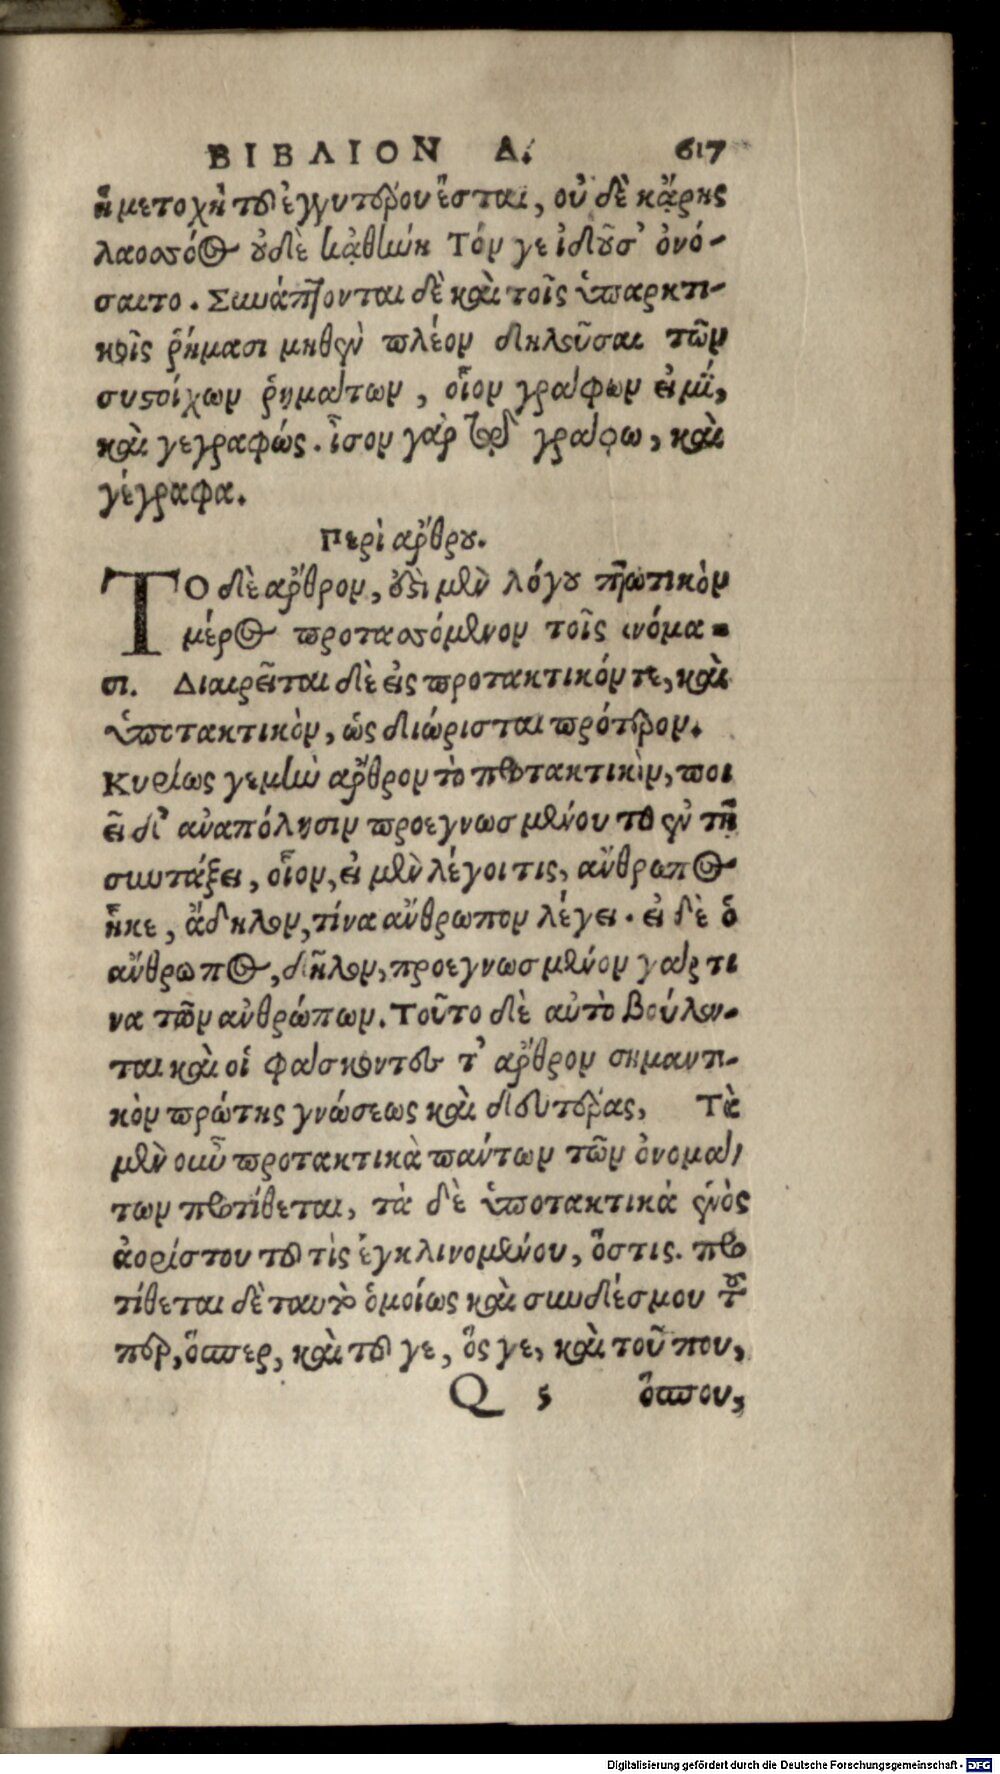 ΒΙΒΛΙΟΝ Δ. 617
ἡ μετοχὴ τοῦ ἐγγυτέρου ἔσται, οὐ δὲ κἄρης
λαοσσόος οὐδὲ Τόν γε ἰδοῦσ' ὀνό-
σαιτο. Συνάπτονται δὲ καὶ τοῖς ὑπαρκτι-
κοῖς ῥήμασι μηθὲν πλέον δηλοῦσαι τῶν
συστοίχων ῥημάτων, οἷον γράφων εἰμί,
καὶ γεγραφώς. ἶσον γὰρ τῷ γράφω, καὶ
γέγραφα.
Περὶ ἄρθρου.
ΤΟ δὲ ἄρθρον, ἔστι μὲν λόγου πτωτικὸν
μέρος προτασσόμενον τοῖς ὀνόμα-
σι. Διαιρεῖται δὲ εἰς προτακτικόν τε, καὶ
ὑποτακτικὸν, ὡς διώρισται πρότερον.
Κυρίως γε μὴν ἄρθρον τὸ προτακτικὸν, ποι
εῖ δ' ἀναπόλησιν προεγνωσμένου τοῦ ἐν τῇ
συντάξει, οἷον, εἰ μὲν λέγοι τις, ἄνθρωπος
ἧκε, ἄδηλον, τίνα ἄνθρωπον λέγει. εἰ δὲ ὁ
ἄνθρωπος, δῆλον, προεγνωσμένον γάρ τι
να τῶν ἀνθρώπων. Τοῦτο δὲ αὐτὸ βούλον-
ται καὶ οἱ φάσκοντες τ' ἄρθρον σημαντι-
κὸν πρώτης γνώσεως καὶ δευτέρας, Τὰ
μὲν οὖν προτακτικὰ πάντων τῶν ὀνομά-
των προτίθεται, τὰ δὲ ὑποτακτικὰ ἑνὸς
ἀορίστου τοῦ τὶς ἐγκλινομένου, ὅστις. προ
τίθεται δὲ ταῦτα ὁμοίως καὶ συνδέσμου τοῦ
περ, ὅσπερ, καὶ τοῦ γε, ὅς γε, καὶ τοῦ που,
Q 5 ὅπου,
Digitalisierung gefördert durch die Deutsche Forschungsgemeinschaft - DFG